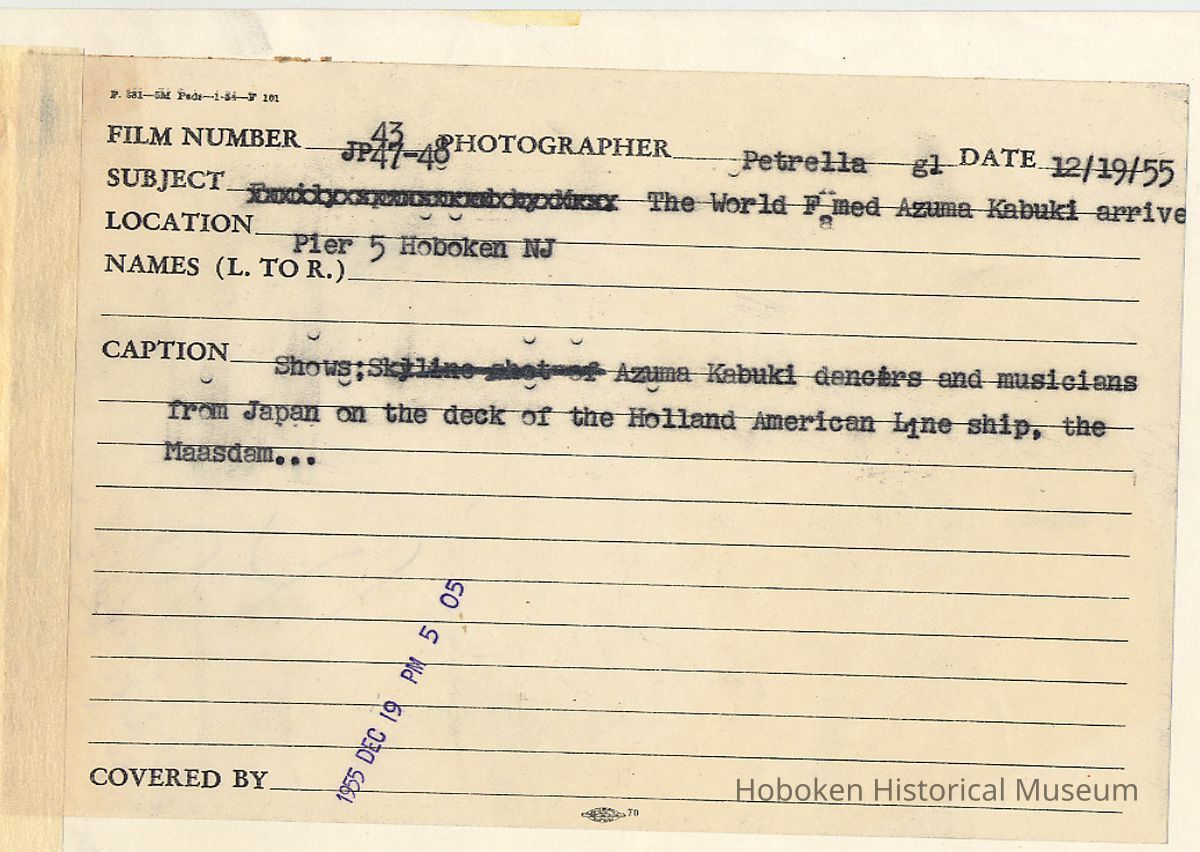 F. 581—5M Pads—1-54—F 101
FILM NUMBER JP47-48 43 PHOTOGRAPHER Petrella gl DATE 12/19/55
SUBJECT The World Famed Azuma Kabuki arrive
LOCATION Pier 5 Hoboken NJ
NAMES (L. TO R.)
CAPTION Shows:Skyline shot of Azuma Kabuki dancers and musicians
from Japan on the deck of the Holland American Line ship, the
Maasdam...
1955 DEC 19 PM 5 05
COVERED BY
Hoboken Historical Museum
70